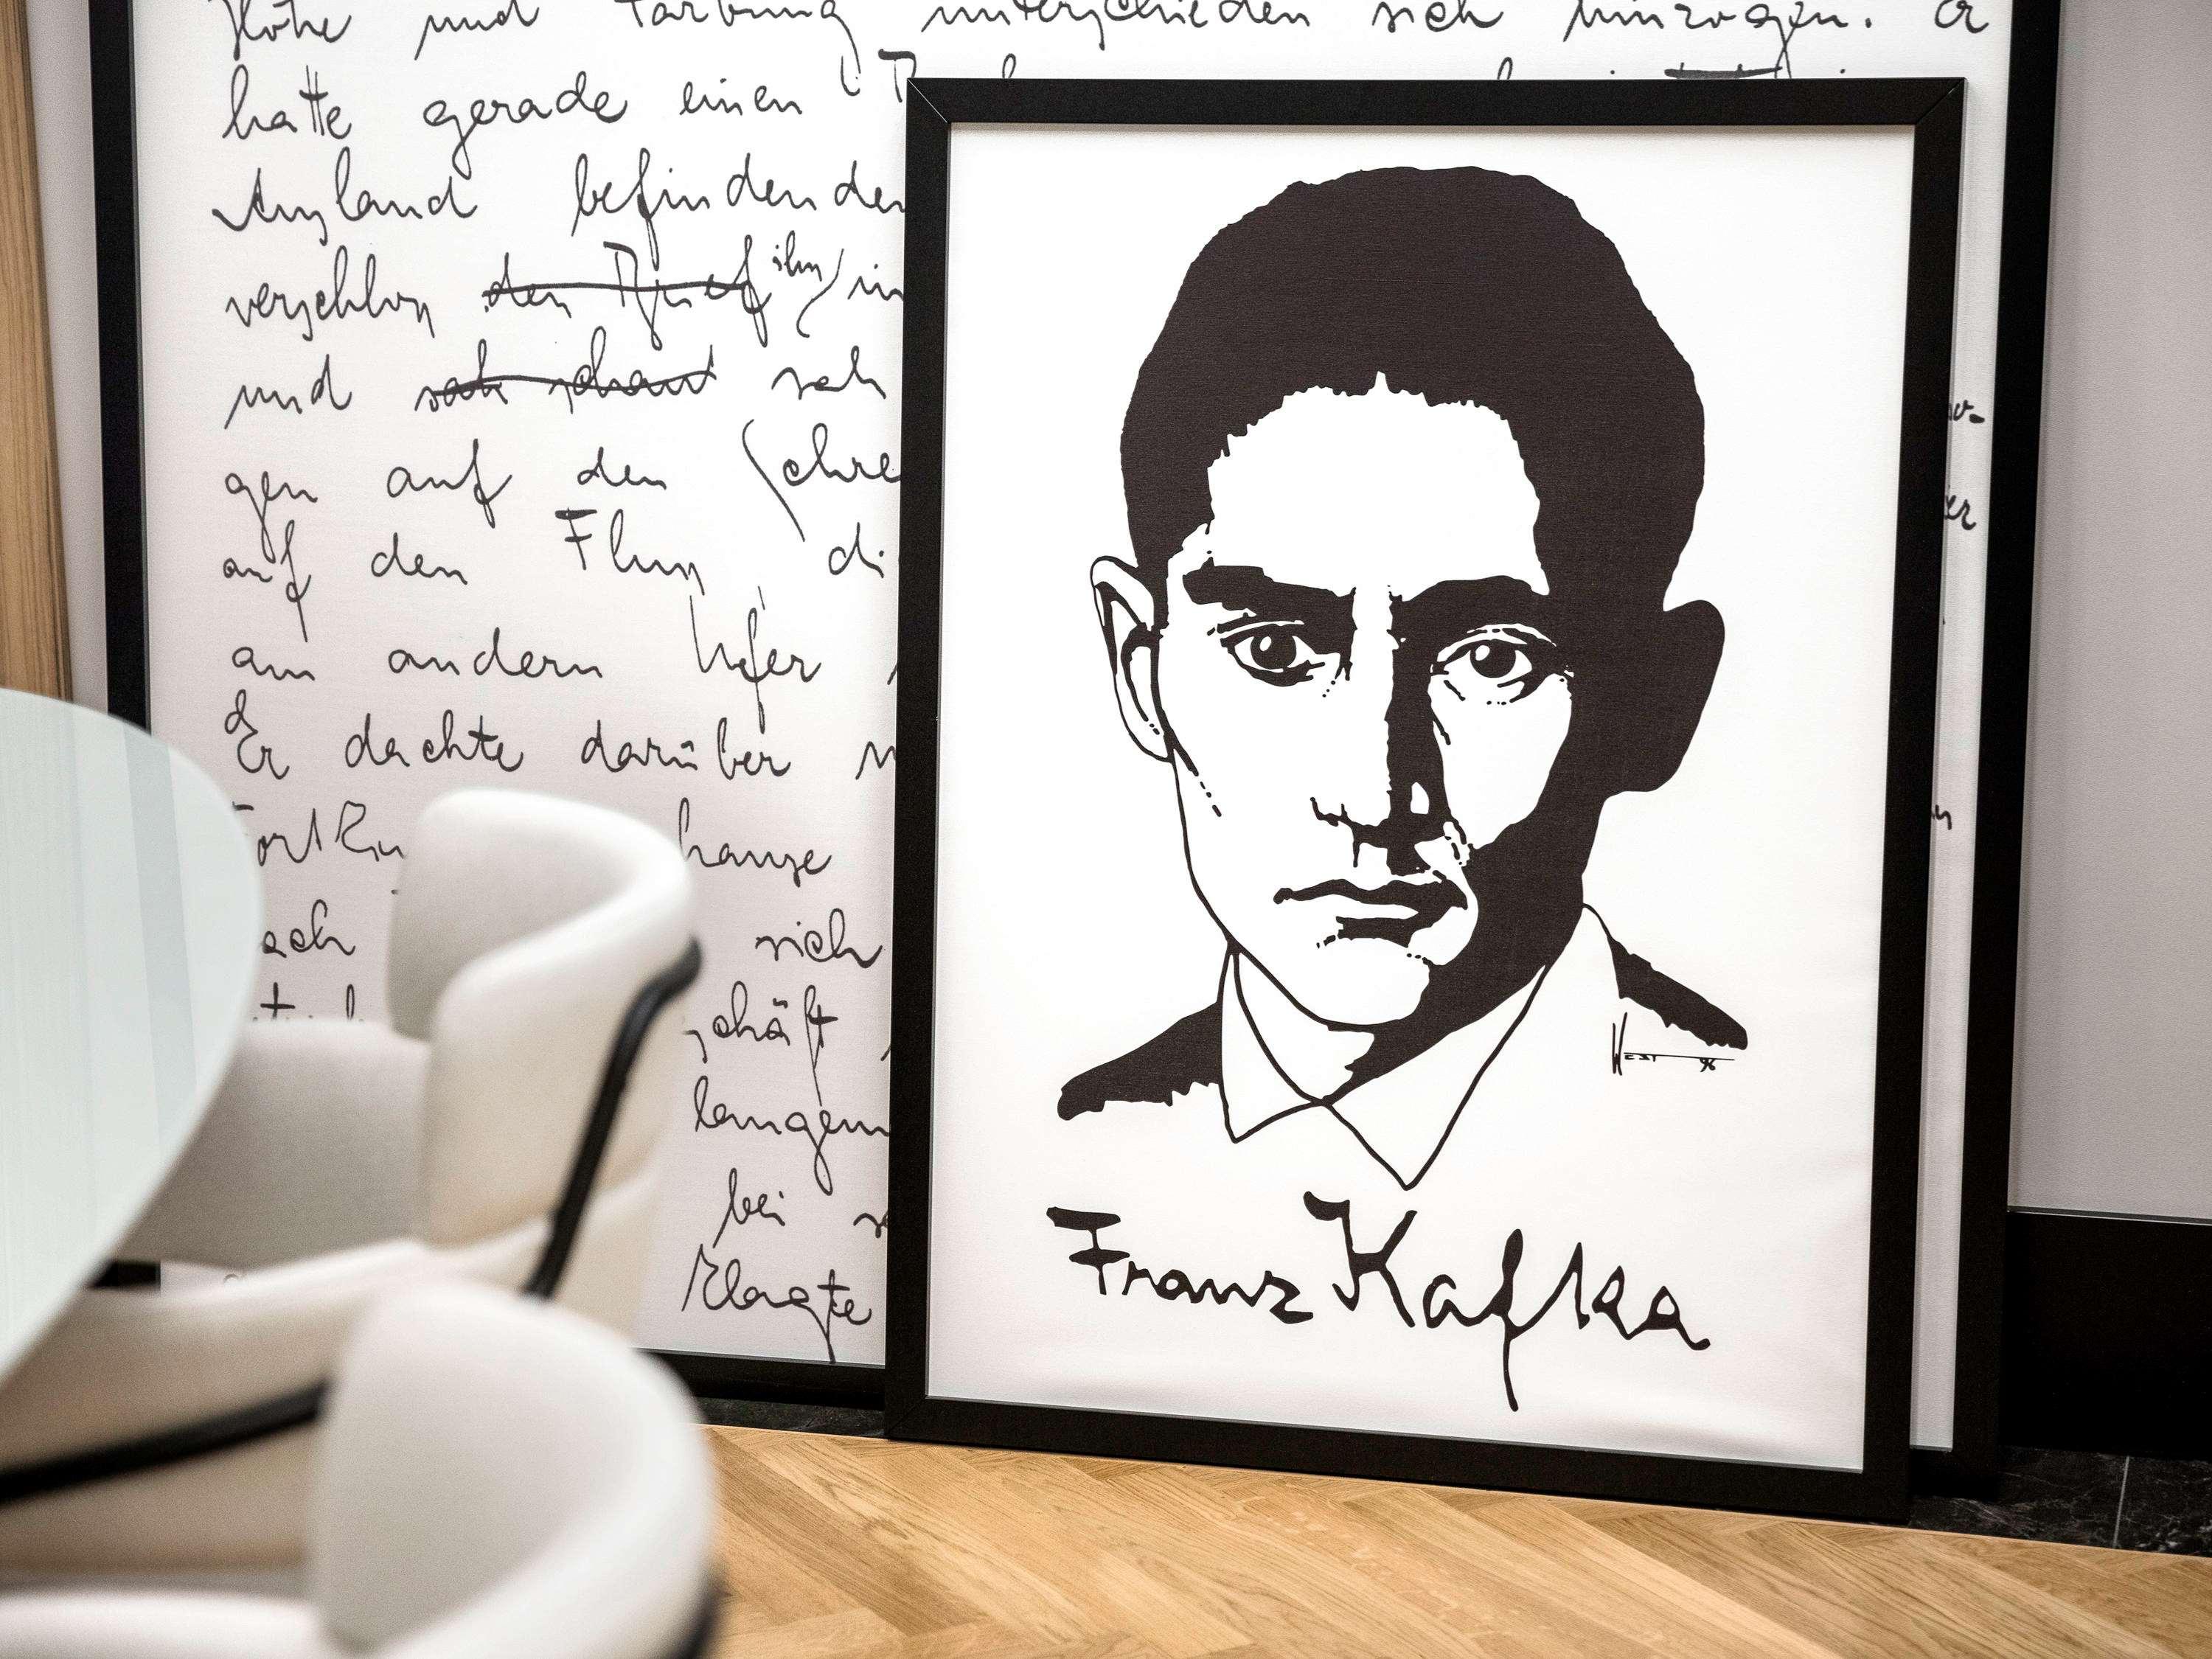 Höhe und Färbung unterschieden sich hinzogen. Er
hatte gerade einen
Ausland befindenden
verschloss den Brief ihn in
und sah schaut sah
gen auf den Schre
auf den Fluss, di
am andern Ufer
Er dachte darüber
hause
sich
schäft
langem
bei
klagte
West 96
Franz Kafka